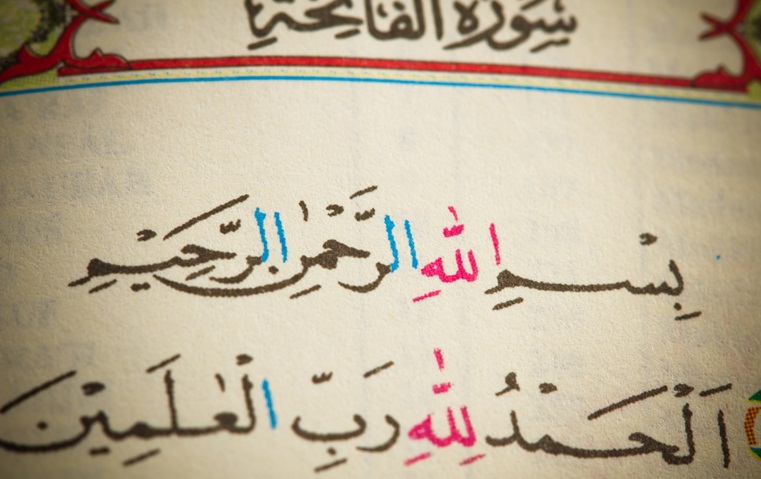 سُورَةُ الْفَاتِحَةِ
بِسْمِ اللهِ الرَّحْمٰنِ الرَّحِيْمِ
اَلْحَمْدُ لِلّٰهِ رَبِّ الْعٰلَمِيْنَ